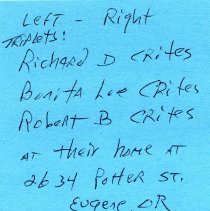 LEFT - Right
TRIPLETS!
Richard D Crites
Bonita Lee Crites
Robert B Crites
AT their home AT
2634 Potter ST.
Eugene OR